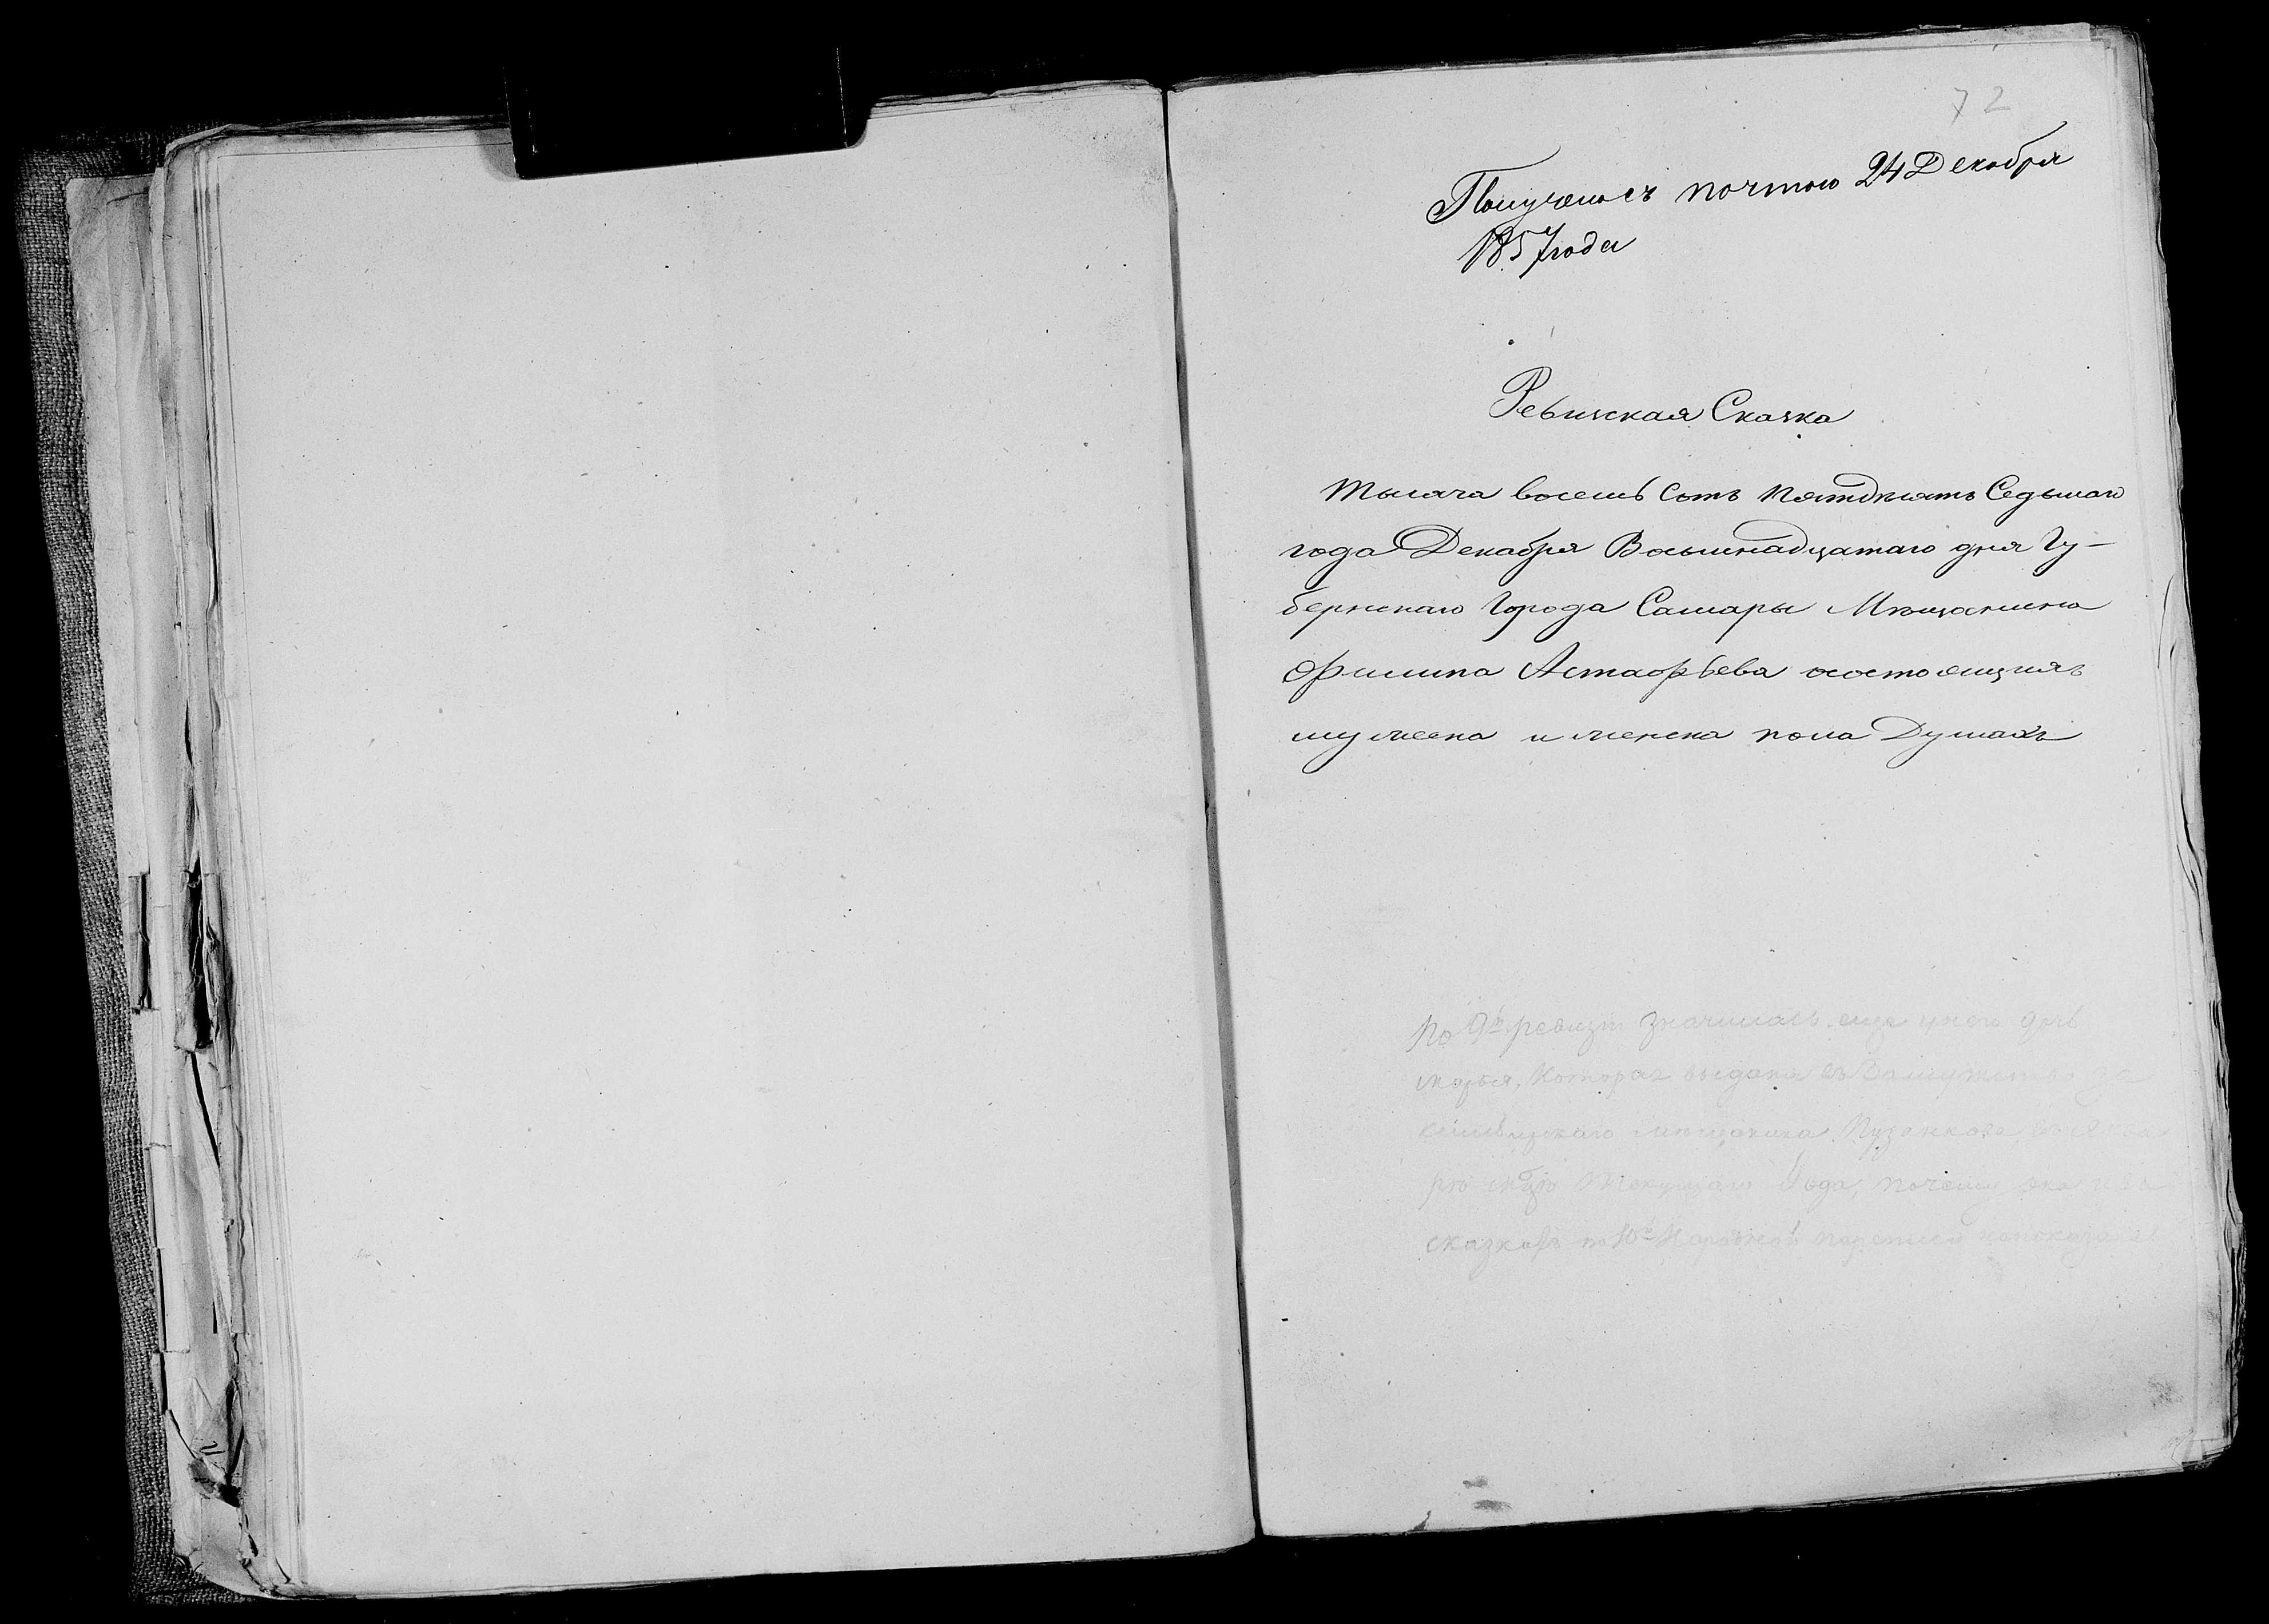 72
Получено съ почтою 24 Декабря
1857 года
Ревизская Сказка
Тысяча восемь сотъ пятдесятъ Седьмаго
года Декабря Восьмнадцатаго дня Гу-
бернскаго Города Самары Мѣщанина
Филипа Астафьева о состоящихъ
мужеска и женска пола Душахъ
По 9й ревизіи значилась еще у него дочь
Марья, которая выдана въ Замужество за
мѣщанина Пузанкова,
текущаго Года, почему она и въ
сказкахъ по 10й Народной переписи не показана